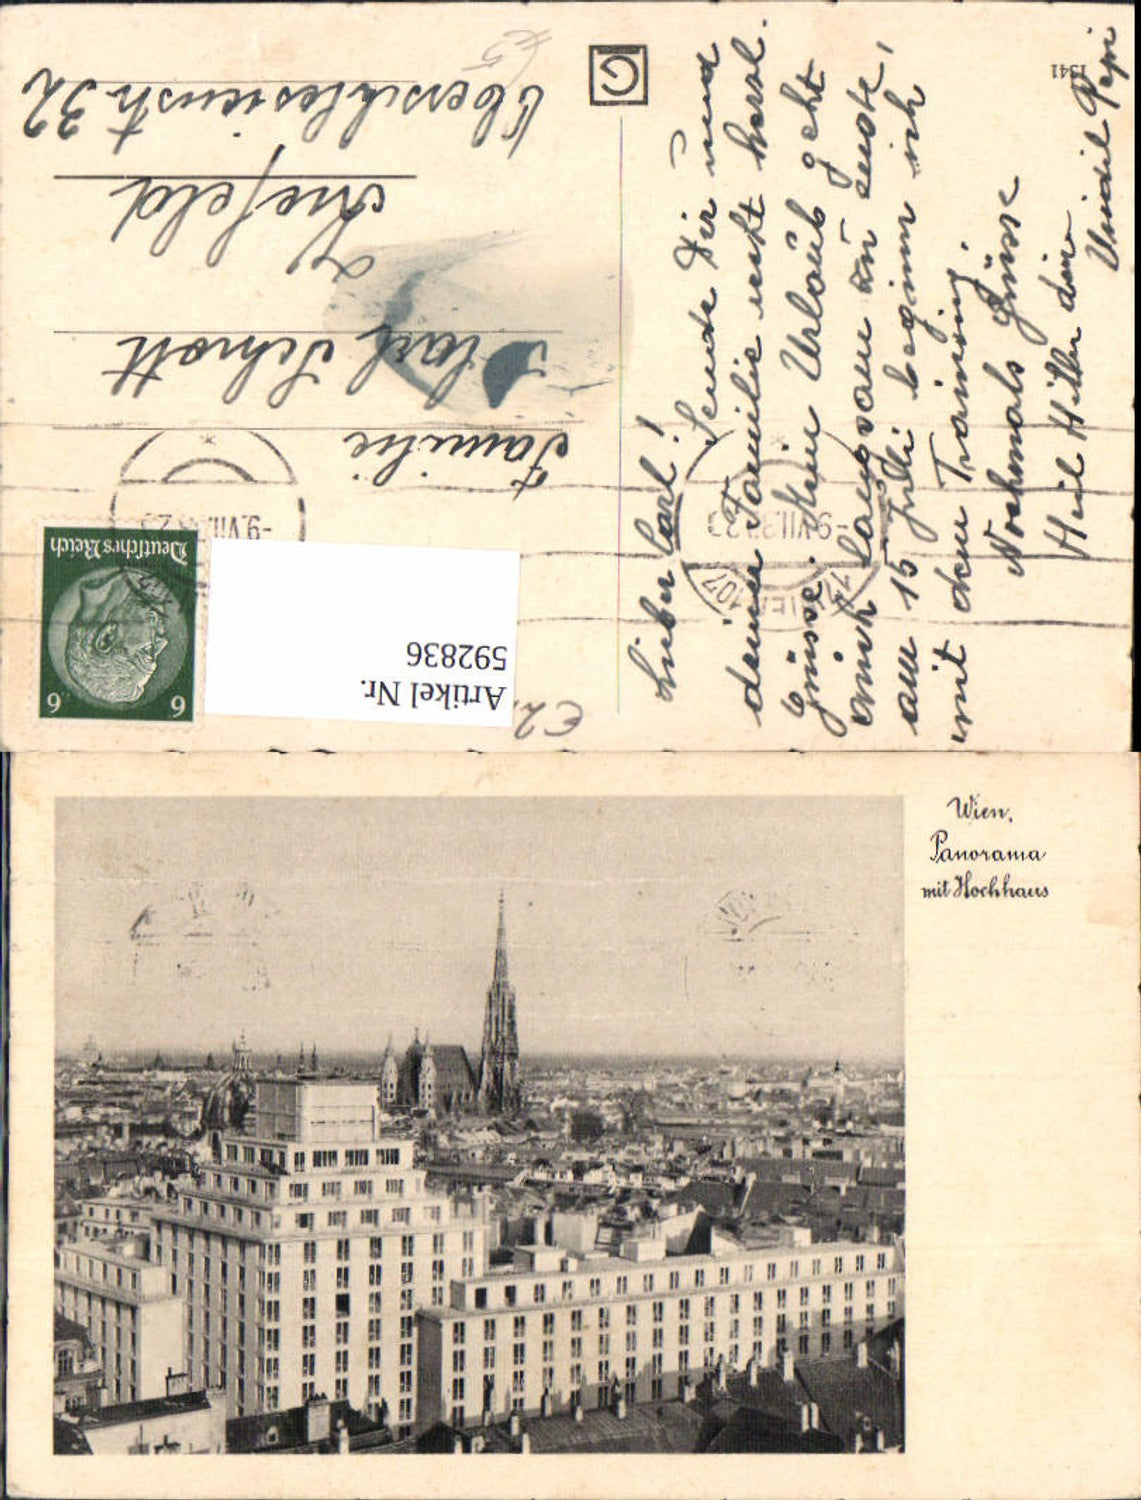 1541
Lieber Carl!
Sende Dir und
deiner Familie recht herzl.
Grüsse. Mein Urlaub geht
auch langsam zu Ende,
am 15 Juli beginn ich
mit dem Training.
Nochmals Grüsse
Heil Hitler dein
Pepi
Familie
Karl Schott
Krefeld
Oberschlesienstr 32
Deutsches Reich
6 6
-9.VII.
WIEN 107
-9.VII.
Artikel Nr.
592836
G
€2
Wien,
Panorama
mit Hochhaus